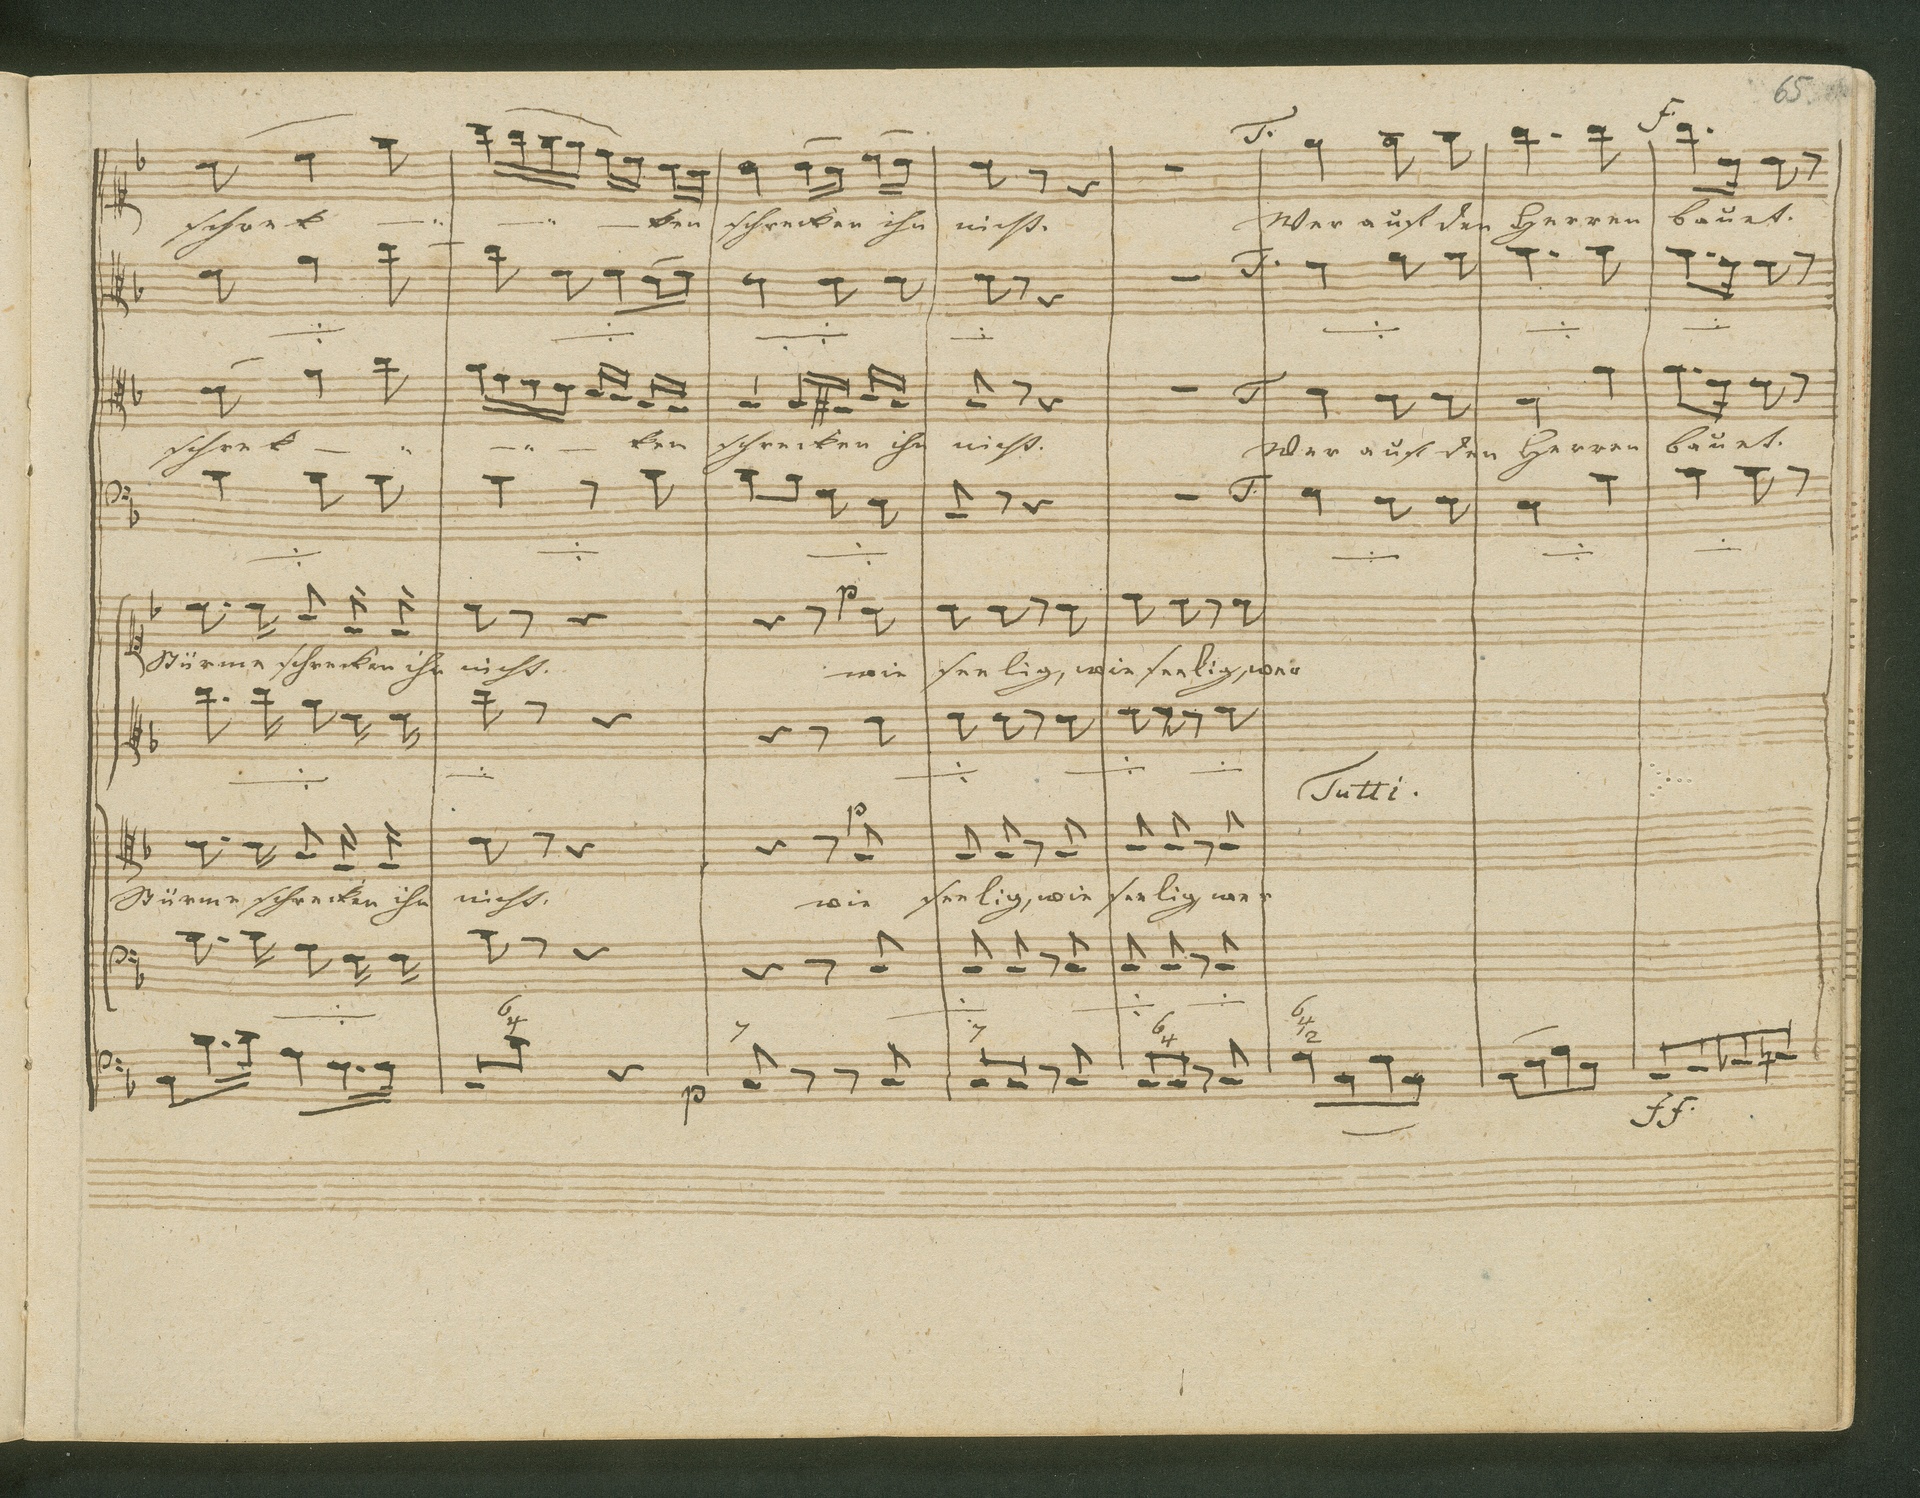 65.
T. f.
schrek — " — " — ken schrecken ihn nicht. Wer auf den Herren bauet.
T.
T.
schrek — " — " — ken schrecken ihn nicht. Wer auf den Herren bauet.
T.
p
Stürme schrecken ihn nicht. wie seelig, wie seelig, wer
Tutti.
p
Stürme schrecken ihn nicht. wie seelig, wie seelig, wer
6 4 7 7 6 4 6 4 2
p ff.